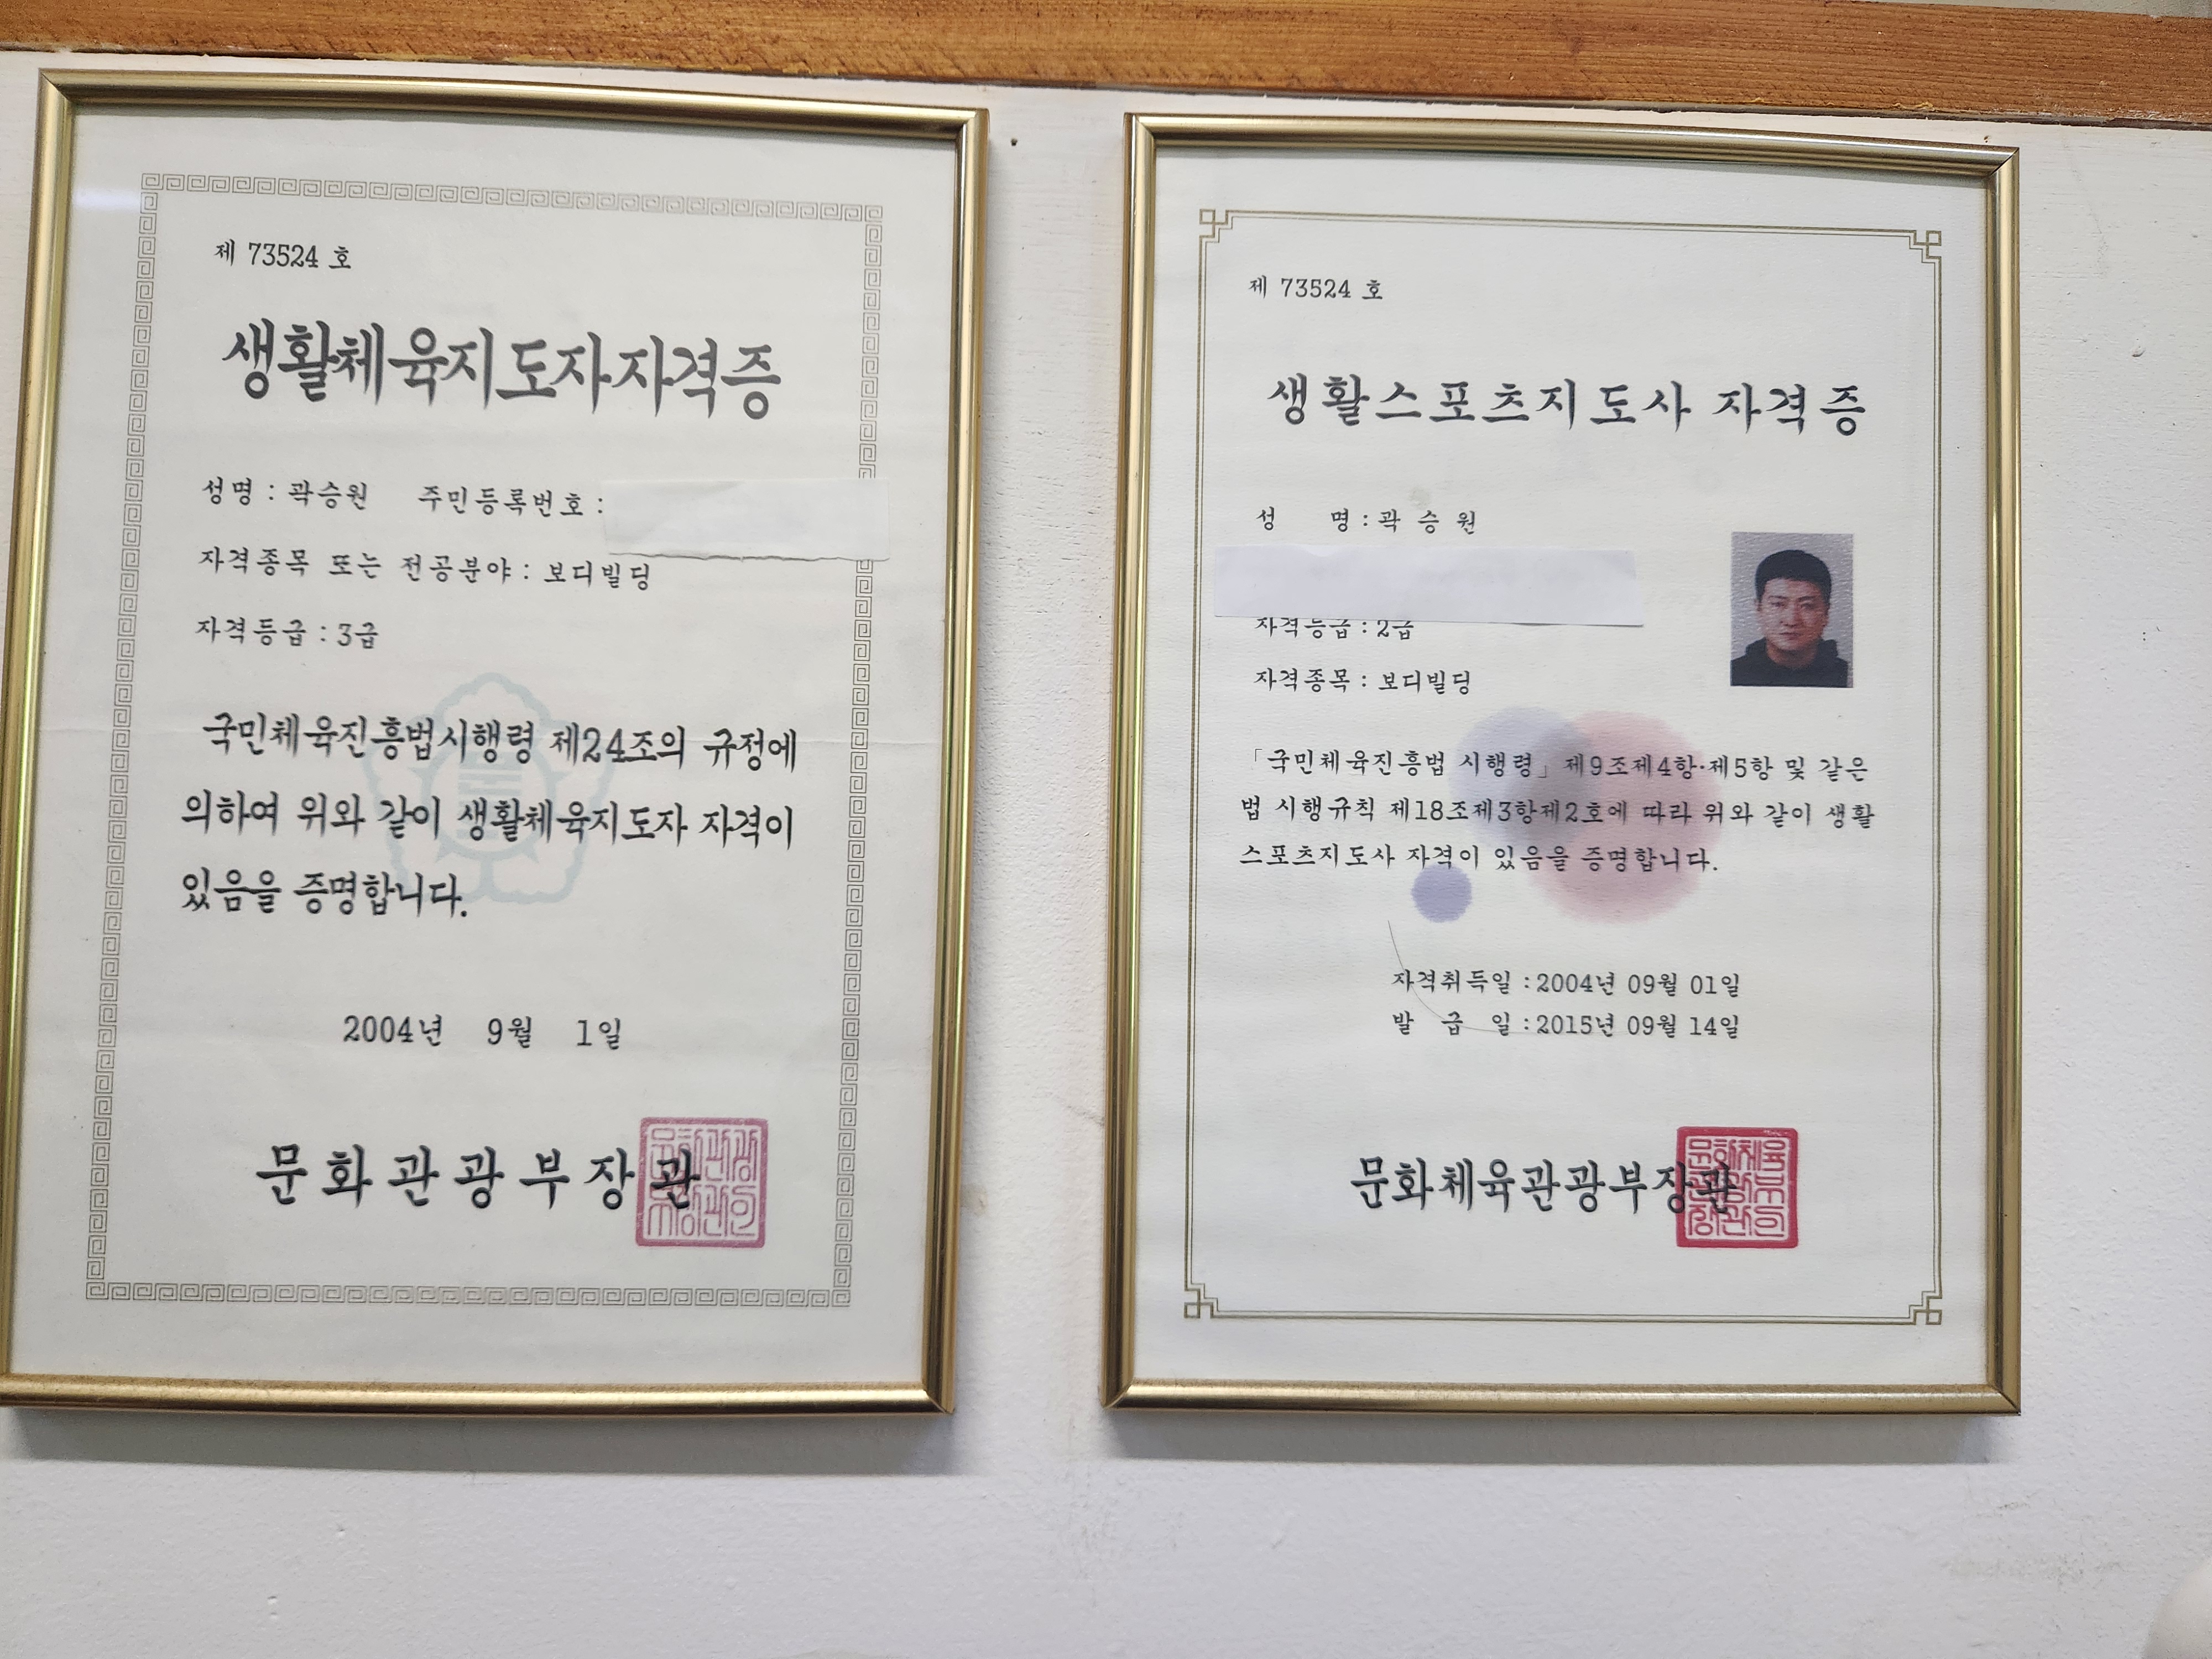 제 73524 호
생활체육지도자자격증
성명 : 곽승원 주민등록번호 :
자격종목 또는 전공분야 : 보디빌딩
자격등급 : 3급
국민체육진흥법시행령 제24조의 규정에
의하여 위와 같이 생활체육지도자 자격이
있음을 증명합니다.
2004년 9월 1일
문화관광부장관
제 73524 호
생활스포츠지도사 자격증
성 명 : 곽 승 원
자격등급 : 2급
자격종목 : 보디빌딩
「국민체육진흥법 시행령」제9조제4항·제5항 및 같은
법 시행규칙 제18조제3항제2호에 따라 위와 같이 생활
스포츠지도사 자격이 있음을 증명합니다.
자격취득일 : 2004년 09월 01일
발 급 일 : 2015년 09월 14일
문화체육관광부장관